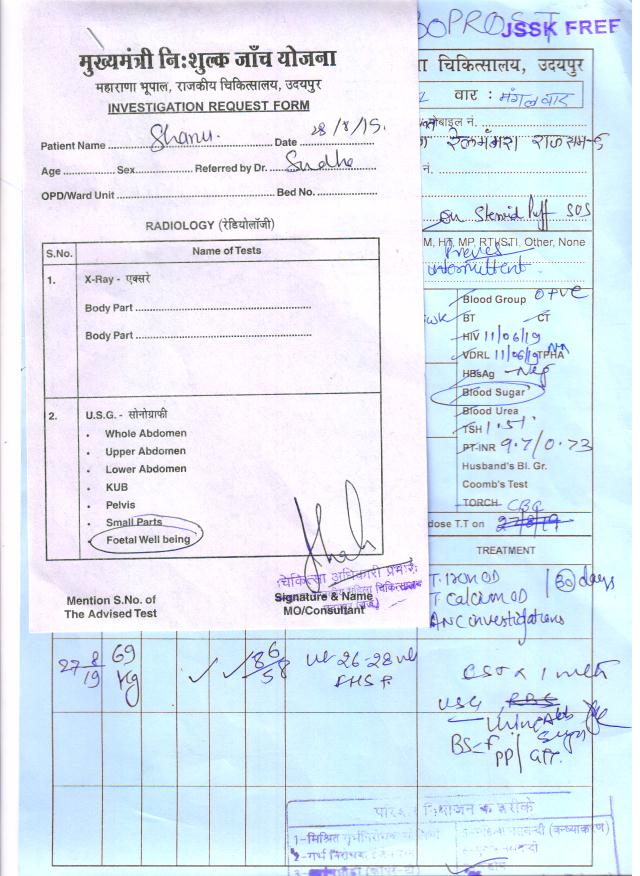 JSSK FREE
मुख्यमंत्री नि:शुल्क जाँच योजना
महाराणा भूपाल, राजकीय चिकित्सालय, उदयपुर
INVESTIGATION REQUEST FORM
Patient Name Shanu Date 28/8/19.
Age Sex Referred by Dr. Sudha
OPD/Ward Unit Bed No.
RADIOLOGY (रेडियोलॉजी)
S.No. Name of Tests
1. X-Ray - एक्सरे
Body Part
Body Part
2. U.S.G. - सोनोग्राफी
• Whole Abdomen
• Upper Abdomen
• Lower Abdomen
• KUB
• Pelvis
• Small Parts
• Foetal Well being
चिकित्सा अधिकारी प्रभारी
Mention S.No. of
The Advised Test
Signature & Name
MO/Consultant
चिकित्सालय, उदयपुर
वार : मंगलवार
मोबाइल नं.
नं.
on Steroid Puff SOS
M, HT, MP, RTI/STI, Other, None
intermittent
Blood Group O+ve
BT CT
HIV 11/06/19
VDRL 11/06/19 TPHA
HBsAg Neg
Blood Sugar
Blood Urea
TSH 1.51
PT-INR 9.7/0.73
Husband's Bl. Gr.
Coomb's Test
TORCH CBC
dose T.T on 27/8/19
TREATMENT
T. Iron OD
T Calcium OD
30 days
ANC investigations
27/8/19 69 kg 86/58 26-28
CST x 1 mth
USG RBS
Urine
BS-F
PP/
1-मिश्रित
2-गर्भ निरोधक